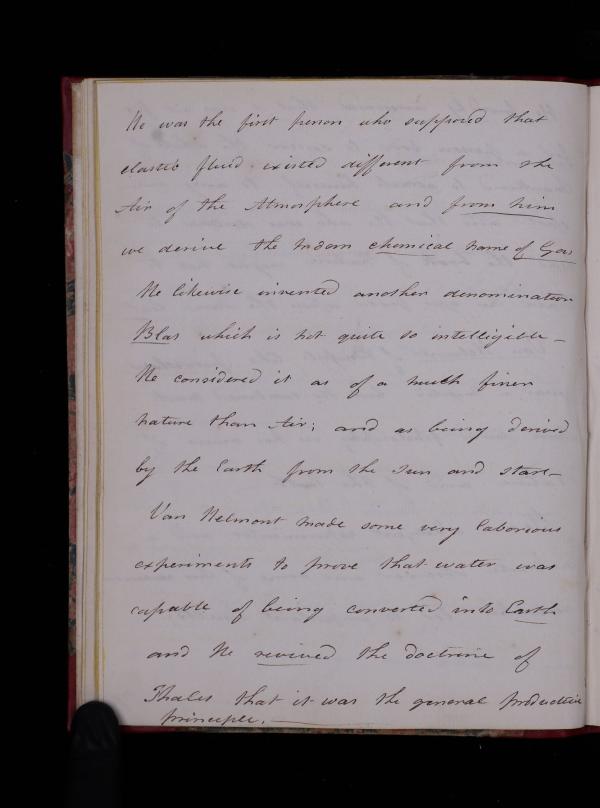 He was the first person who supposed that
elastic fluid existed different from the
Air of the Atmosphere and from him
we derive the modern chemical name of Gas
He likewise invented another denomination
Blas which is not quite so intelligible –
He considered it as of a much finer
nature than Air; and as being derived
by the Earth from the Sun and stars –
Van Helmont made some very laborious
experiments to prove that water was
capable of being converted into Earth
and he revived the doctrine of
Thales that it was the general productive
principle. —